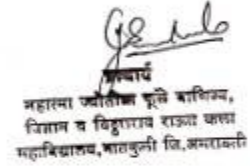 प्राचार्य
महात्मा ज्योतीबा फुले वाणिज्य,
विज्ञान व विठ्ठलराव राऊत कला
महाविद्यालय, भातकुली जि. अमरावती